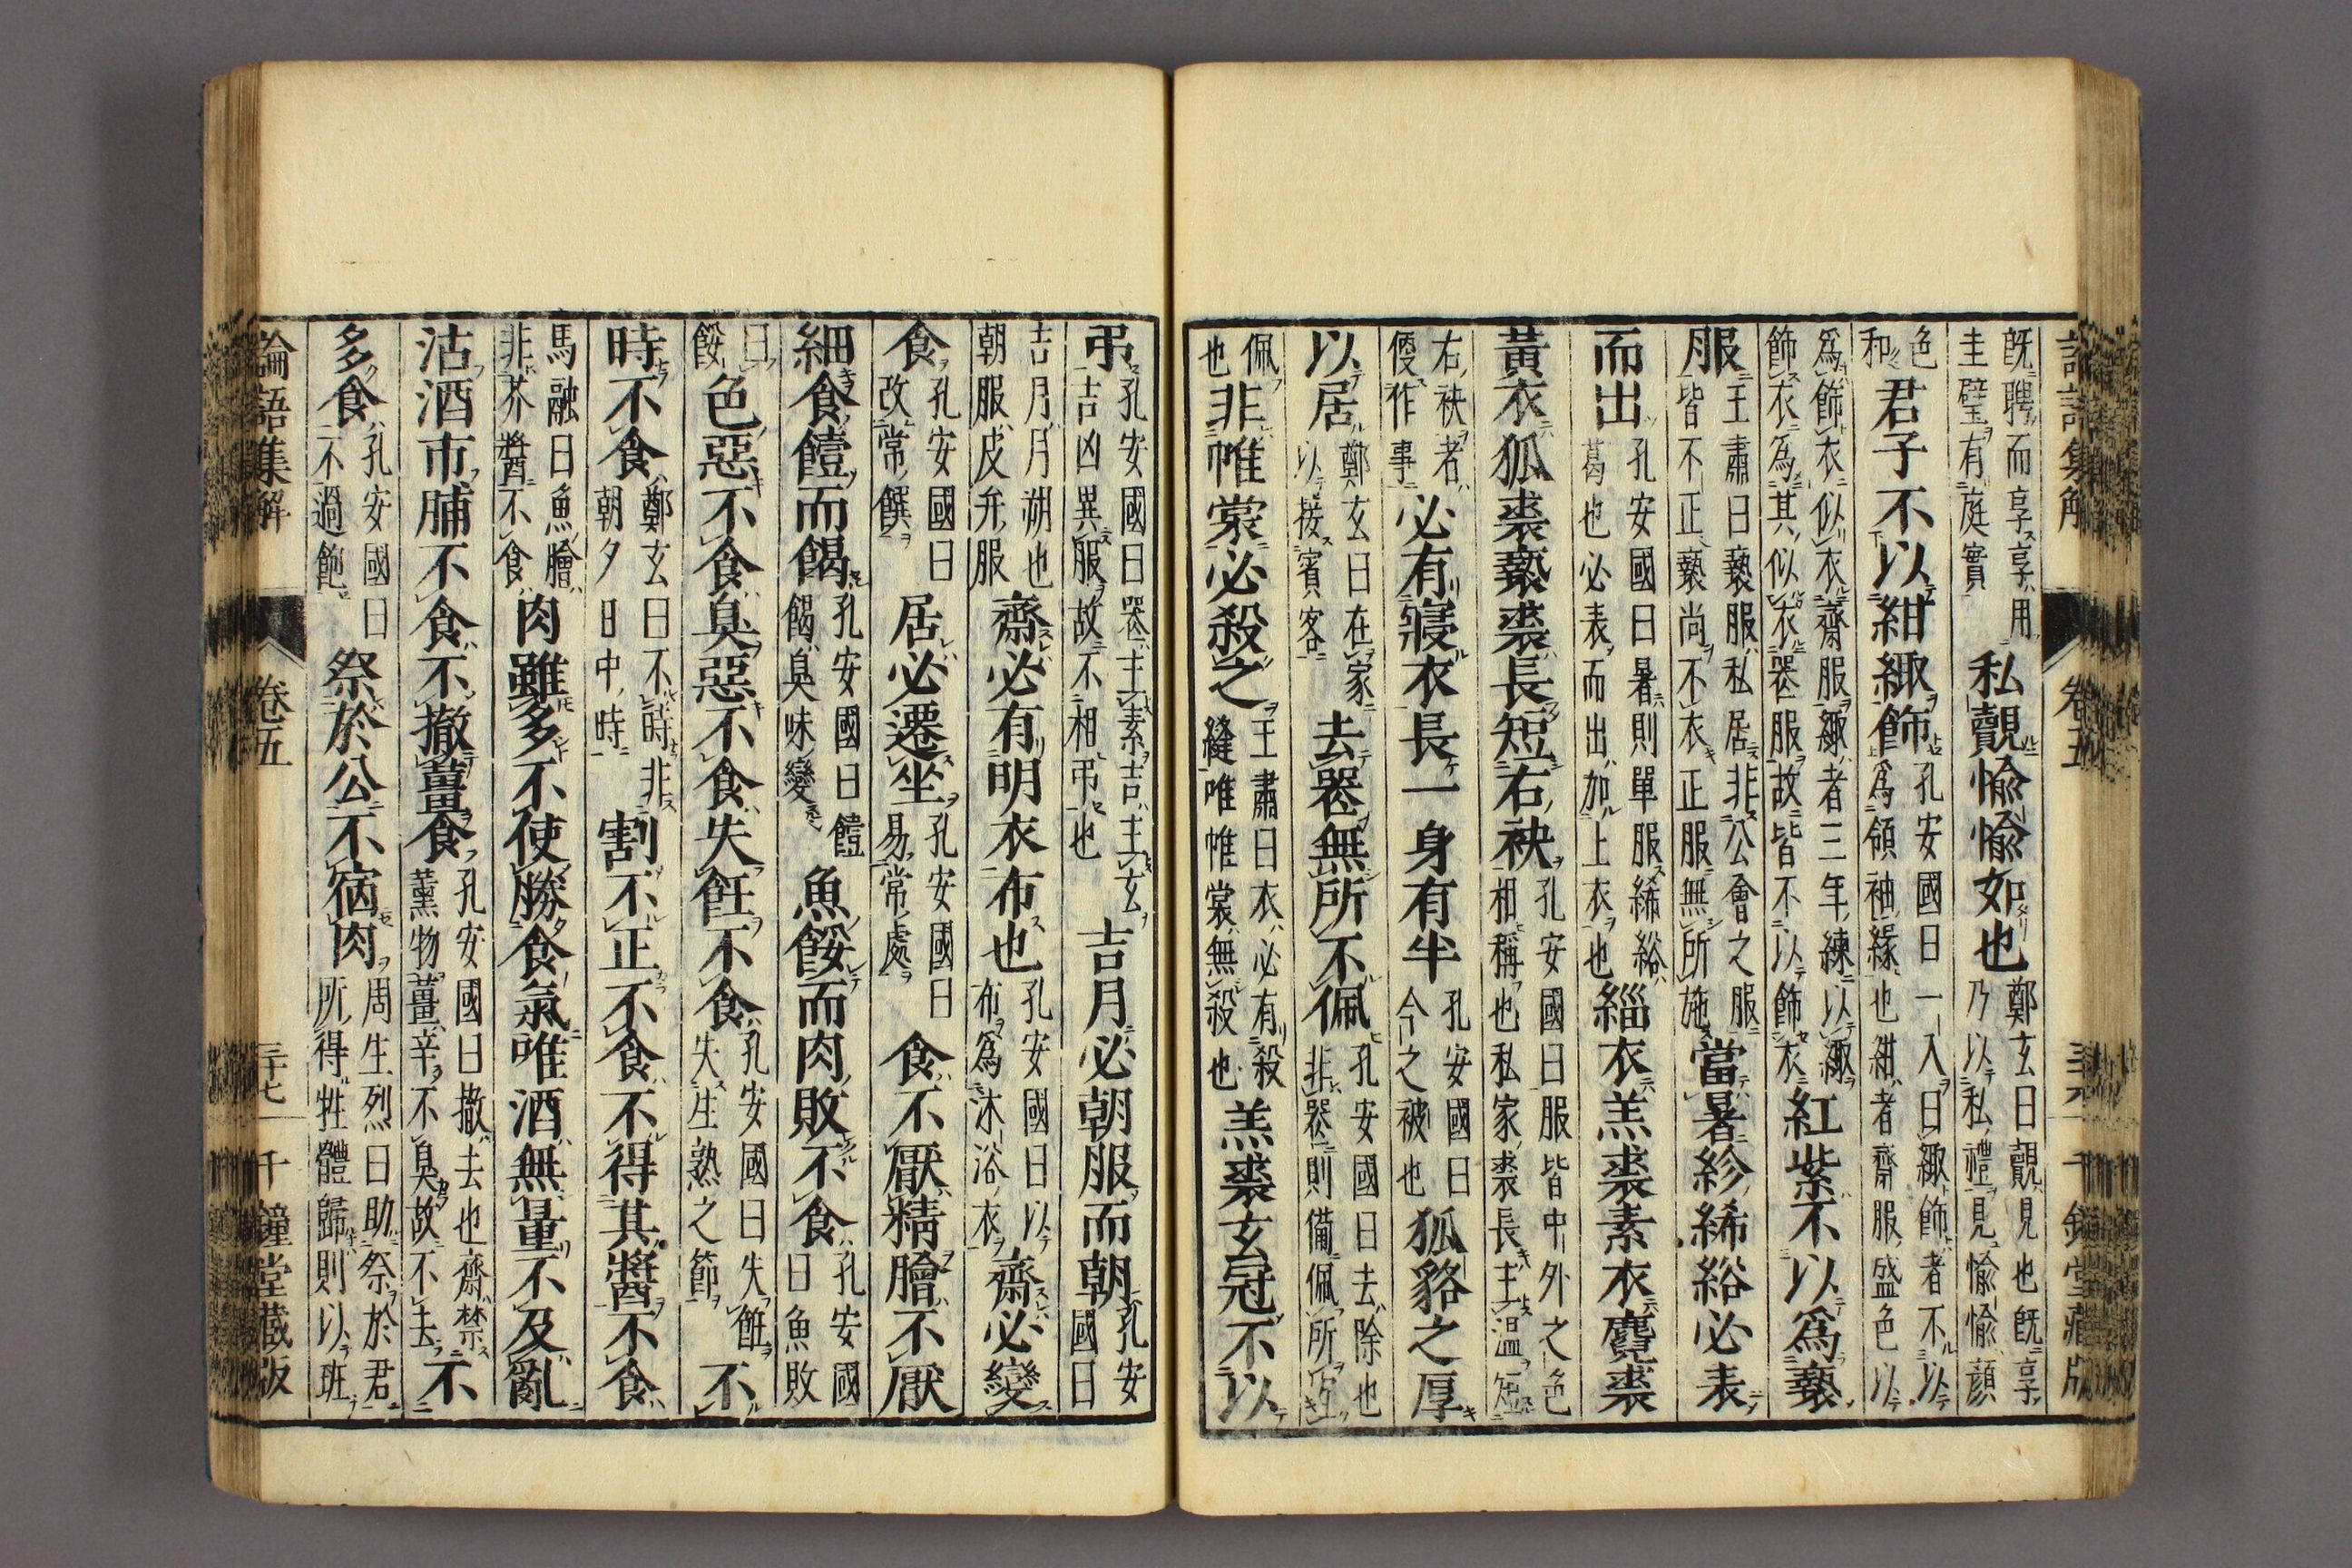 論語集解 卷五 千鐘堂藏版
既聘而享享用圭璧有庭實私覿愉愉如也鄭玄曰覿見也既享乃以私禮見愉愉顏
色和君子不以紺緅飾孔安國曰一入曰緅飾者不以爲領袖緣也紺者齋服盛色以
爲飾衣似衣齋服緅者三年練以緅飾衣為其似衣喪服故皆不以飾衣紅紫不以爲褻
服王肅曰褻服私居非公會之服皆不正褻尚不衣正服無所施當暑紾絺綌必表
而出孔安國曰暑則單服絺綌葛也必表而出加上衣也緇衣羔裘素衣麑裘
黃衣狐裘褻裘長短右袂孔安國曰服皆中外之色相稱也私家裘長主温短
右袂者便作事必有寢衣長一身有半孔安國曰今之被也狐貉之厚
以居鄭玄曰在家以接賓客去喪無所不佩孔安國曰去除也非喪則備佩所宜
佩也非帷裳必殺之王肅曰衣必有殺縫唯帷裳無殺也羔裘玄冠不以
弔孔安國曰喪主素吉主玄吉凶異服故不相弔也吉月必朝服而朝孔安國曰
吉月月朔也朝服皮弁服齋必有明衣布也孔安國曰以布爲沐浴衣齋必變
食孔安國曰改常饌居必遷坐孔安國曰易常處食不厭精膾不厭
細食饐而餲孔安國曰饐餲臭味變魚餒而肉敗不食孔安國曰魚敗
曰餒色惡不食臭惡不食失飪不食孔安國曰失飪失生熟之節不
時不食鄭玄曰不時非朝夕日中時割不正不食不得其醬不食
馬融曰魚膾非芥醬不食肉雖多不使勝食氣唯酒無量不及亂
沽酒市脯不食不撤薑食孔安國曰撤去也齋禁薰物薑辛不臭故不去不
多食孔安國曰不過飽祭於公不宿肉周生烈曰助祭於君所得牲體歸則以班
論語集解 卷五 三十七 千鐘堂藏版